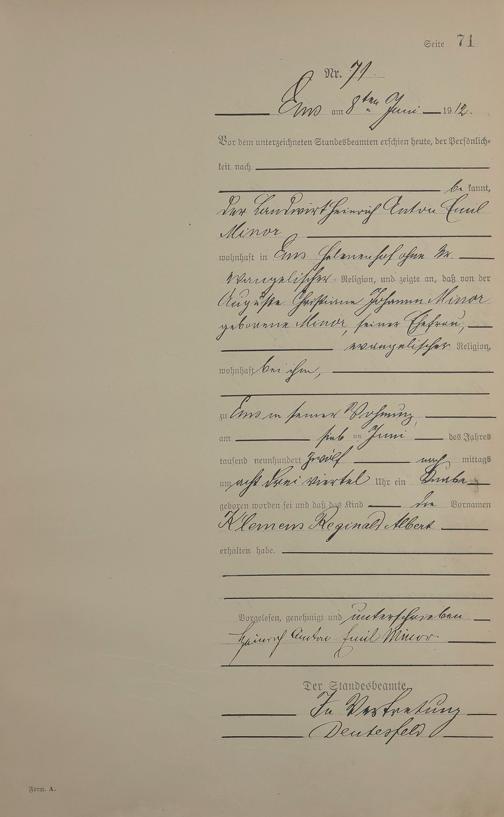 Seite 71
Nr. 71.
Ems am 8ten Juni 1912.
Vor dem unterzeichneten Standesbeamten erschien heute, der Persönlich-
keit nach
be kannt,
der Landwirt Heinrich Anton Emil
Minor
wohnhaft in Ems Helenenhof ohne Nr.
evangelischer Religion, und zeigte an, daß von der
Auguste Christiane Johanna Minor
geborene Minor, seiner Ehefrau,
evangelischer Religion,
wohnhaft bei ihm,
zu Ems in seiner Wohnung,
am Juni des Jahres
tausend neunhundert zwölf nach mittags
um acht drei viertel Uhr ein Knabe
geboren worden sei und daß das Kind die Vornamen
Klemens Reginald Albert
erhalten habe.
Vorgelesen, genehmigt und unterschrieben
Heinrich Anton Emil Minor
Der Standesbeamte
In Vertretung
Deutesfeld
Form. A.